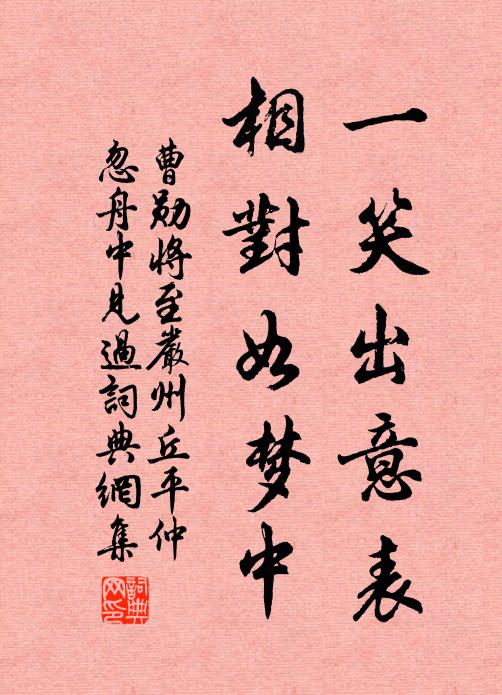 一笑出意表
相對如梦中
曹勋將至嚴州丘平仲
忽舟中見過詞典網集
詞典
网印